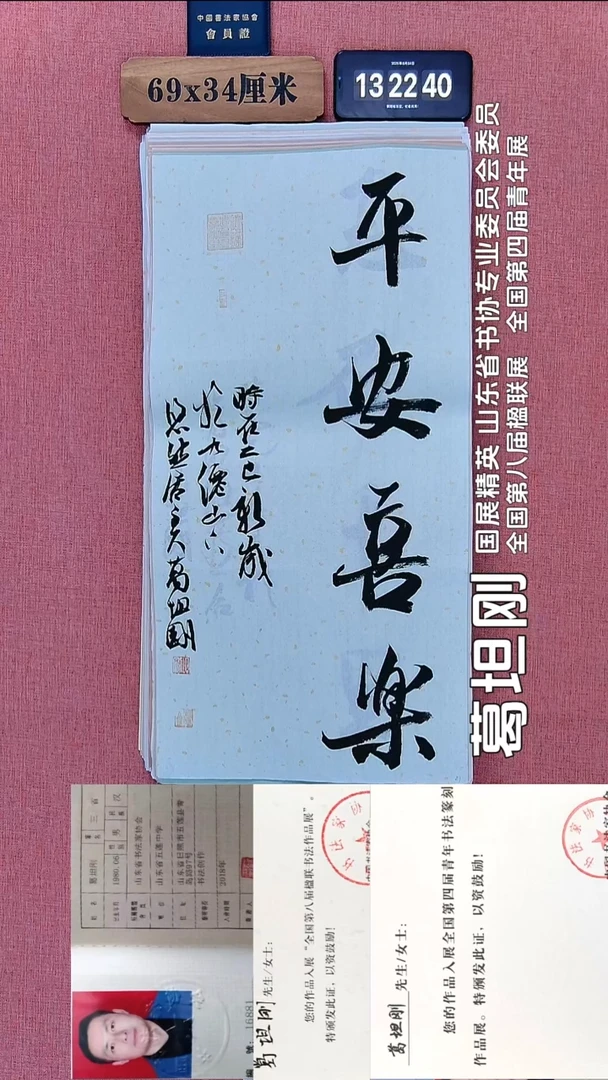 中國書法家協會
會員證
69x34厘米
13 22 40
平安喜樂
時在乙巳新歲
於九僊山下
悠然居主人葛坦剛
国展精英 山东省书协专业委员会委员
全国第八届楹联展 全国第四届青年展
葛坦刚
葛坦刚 先生/女士：
您的作品入展“全国第八届楹联书法作品展”。
特颁发此证，以资鼓励！
葛坦刚 先生/女士：
您的作品入展全国第四届青年书法篆刻
作品展。特颁发此证，以资鼓励！
山东省书法家协会
山东省五莲中学
书法创作
2018年
16881